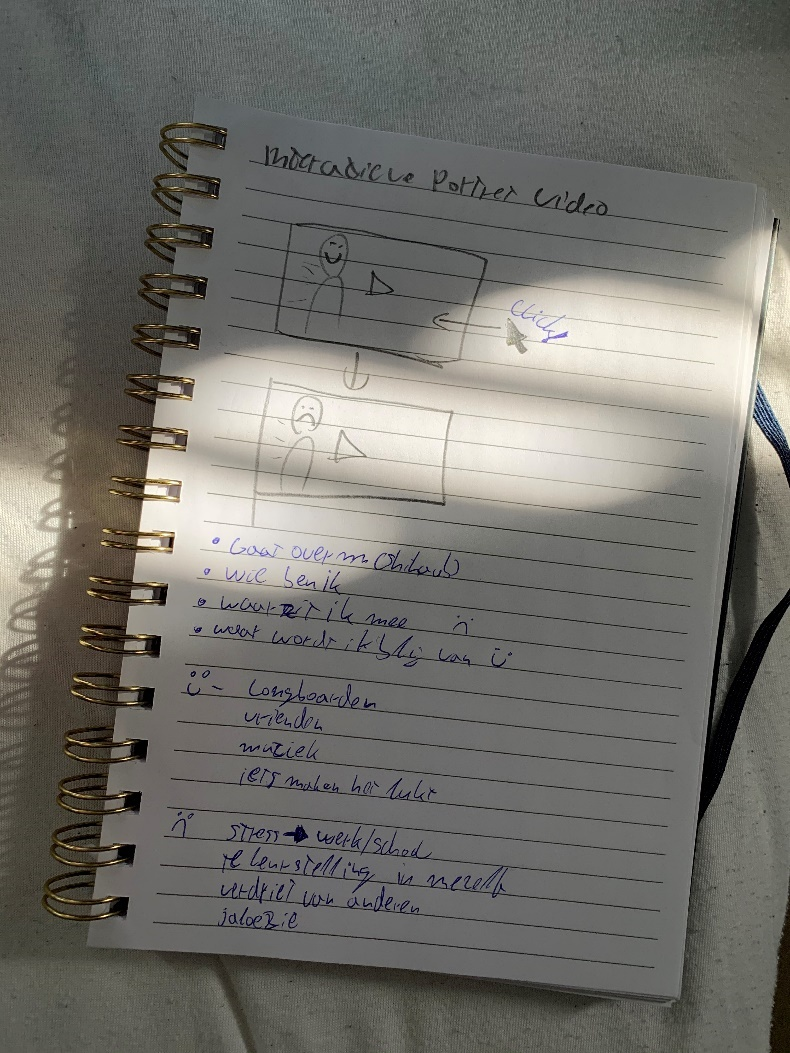 interactieve Portret video
click
• Gaat over m
• wie ben ik
• waar zit ik mee :(
• waar wordt ik blij van :)
:) - Longboarden
vrienden
muziek
iets maken het lukt
:( stress → werk/school
teleurstelling in mezelf
verdriet van anderen
jaloezie